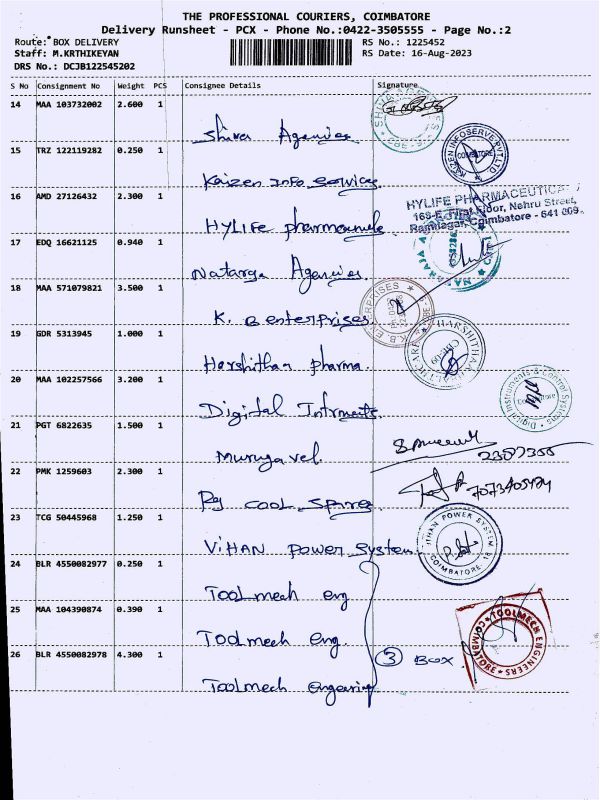 THE PROFESSIONAL COURIERS, COIMBATORE
Delivery Runsheet - PCX - Phone No.:0422-3505555 - Page No.:2
Route: BOX DELIVERY RS No.: 1225452
Staff: M.KRTHIKEYAN RS Date: 16-Aug-2023
DRS No.: DCJB122545202
S No Consignment No Weight PCS Consignee Details Signature
14 MAA 103732002 2.600 1
Shiva Agencies
15 TRZ 122119282 0.250 1
KAIZEN INFOSERVE PVT LTD
COIMBATORE
Kaizen Info Services
16 AMD 27126432 2.300 1
HYLIFE PHARMACEUTICA
168-E, First Floor, Nehru Street,
Ramnagar, Coimbatore - 641 009.
HYLIFE pharmaceuticle
17 EDQ 16621125 0.940 1
Nataraja Agencies
18 MAA 571079821 3.500 1
K.B ENTERPRISES
K. B enterprises
19 GDR 5313945 1.000 1
HARSHITHAA HEALTHCARE
CBE-09
Harshithaa pharma.
20 MAA 102257566 3.200 1
Digital Instruments & Control Systems
Coimbatore
Digital Intrments
21 PGT 6822635 1.500 1
Murugavel.
22 PMK 1259603 2.300 1
Rg COOL Spares
23 TCG 50445968 1.250 1
VIHAN POWER SYSTEM
COIMBATORE
ViHAN power System
24 BLR 4550082977 0.250 1
Toolmech eng
25 MAA 104390874 0.390 1
TOOLMECH ENGINEERS
COIMBATORE
Toolmech eng.
26 BLR 4550082978 4.300 1
3 BOX.
Toolmech engeering